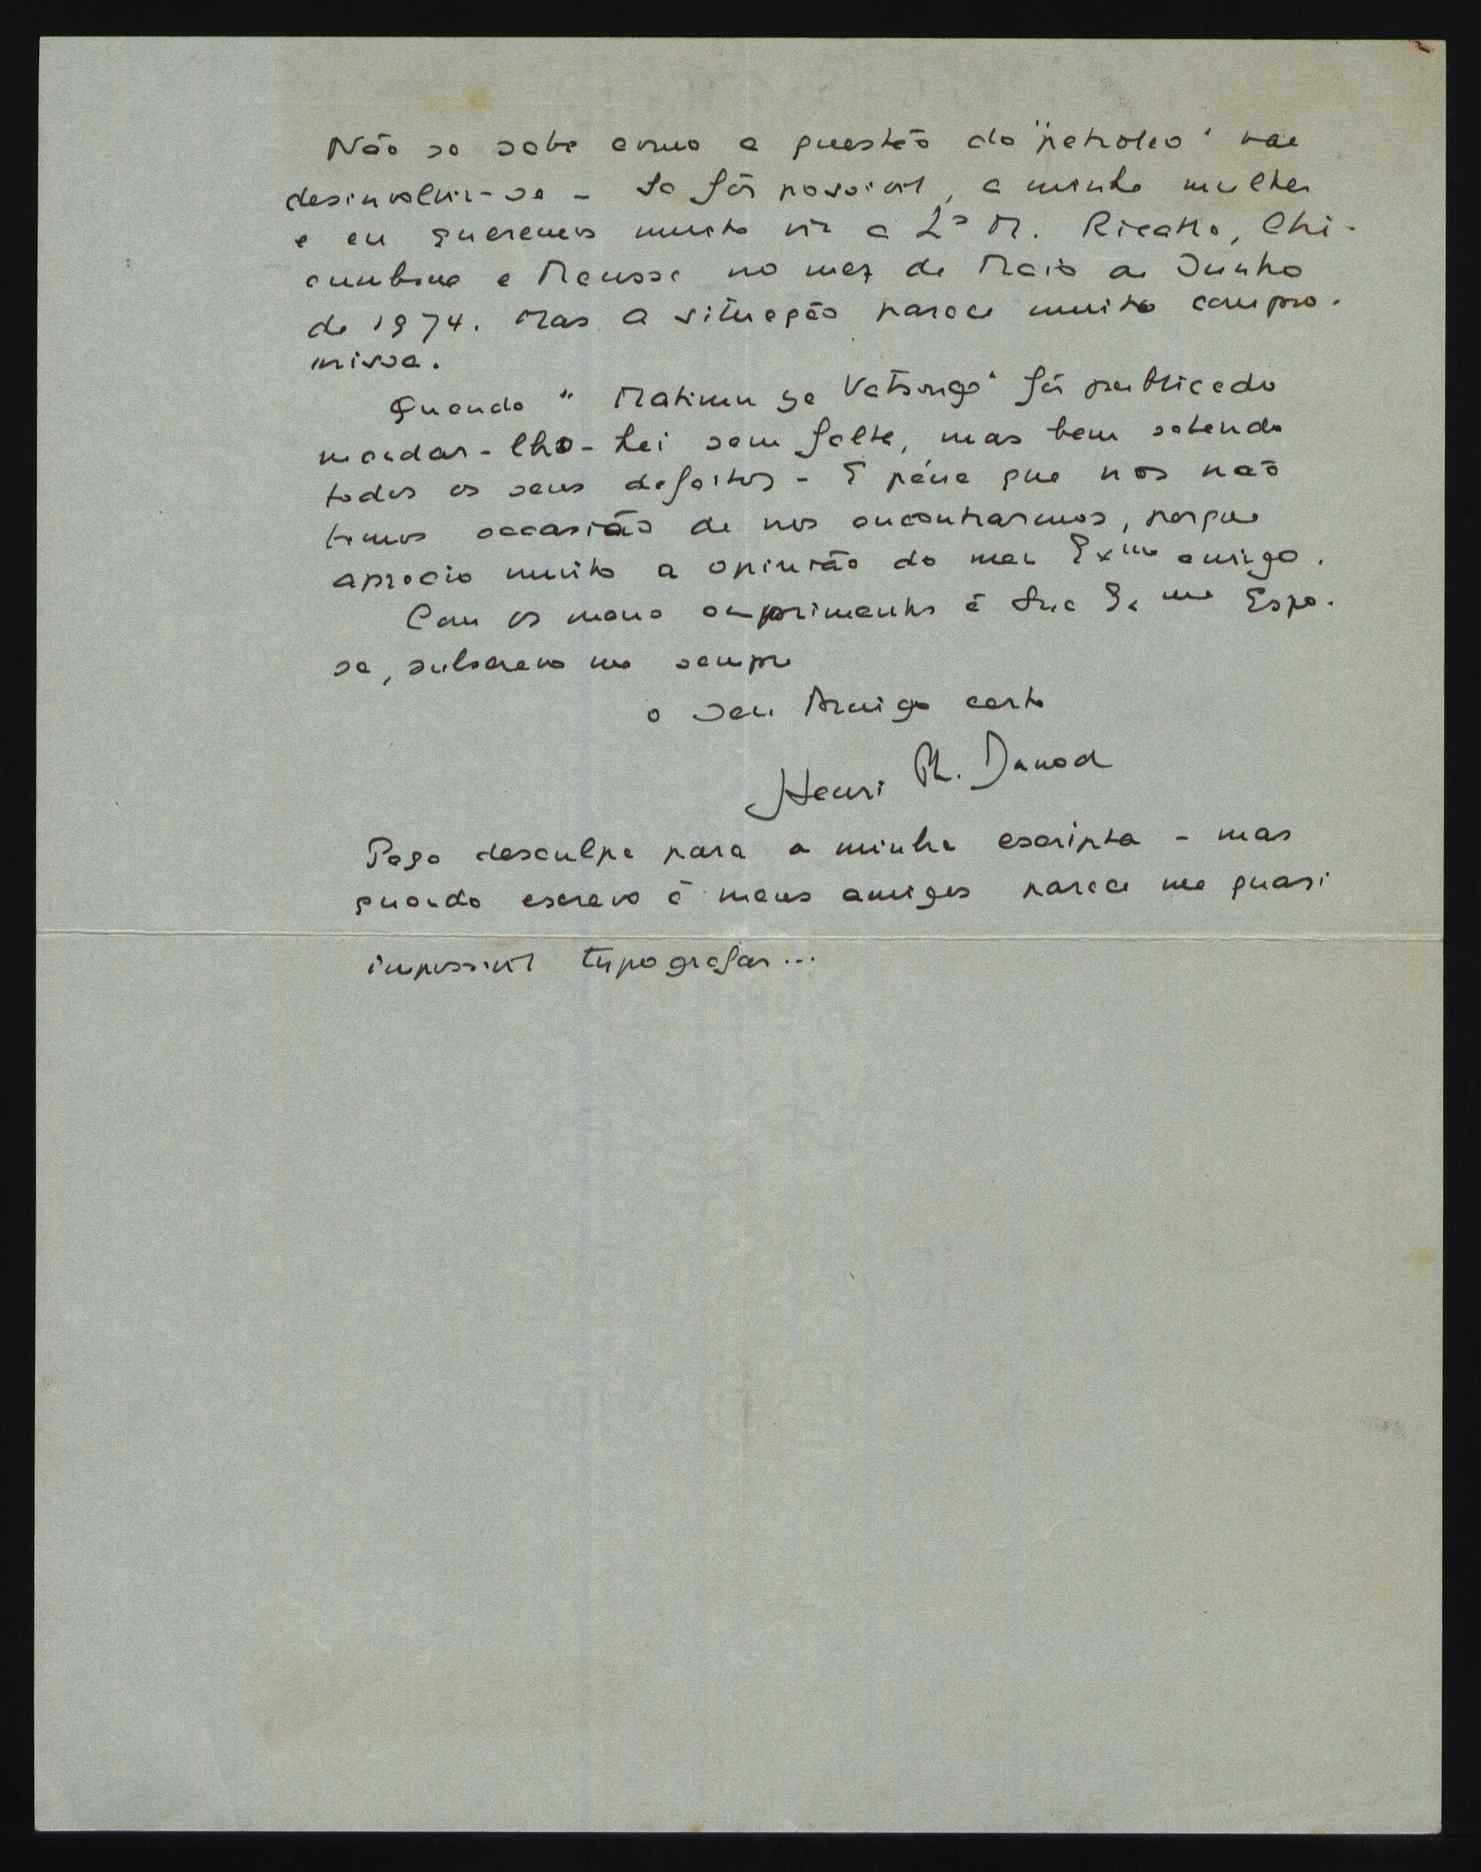 Não se sabe como a questão do "petroleo" vae
desinvolvir-se - Se fôr possivel, a minha mulher
e eu queremos muito vir a Lço M. Ricatla, Chi-
cumbane e Mausse no mez de Maio ou Junho
de 1974. Mas a situação parece muito compro-
missa.
Quando "Matimu ya Vatsonga" fôr publicado
mandar-lho-hei sem falta, mas bem sabendo
todos os seus defeitos - É péna que nos não
temos occasião de nos encontrarmos, porque
aprecio muito a opinião do meu Exmo amigo.
Com os meus cumprimentos á Sua Exma Espo-
sa, subscrevo me sempre
o seu Amigo certo
Henri Ph. Junod
Peço desculpa para a minha escripta - mas
quando escrevo á meus amigos parece me quasi
impossivel typografar...